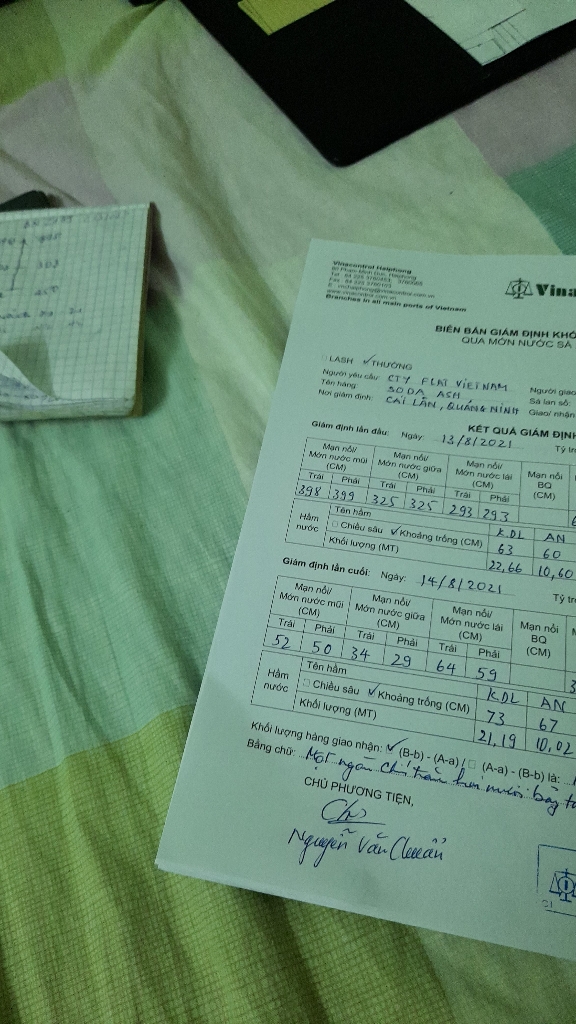 Vinacontrol Haiphong
Branches in all main ports of Vietnam
Vina
BIÊN BẢN GIÁM ĐỊNH KHỐ
QUA MỚN NƯỚC SÀ
LASH ✓ THƯỜNG
Người yêu cầu: CTY FLAT VIETNAM Người giao
Tên hàng: SODA ASH Sà lan số:
Nơi giám định: CÁI LÂN, QUẢNG NINH Giao/ nhận
KẾT QUẢ GIÁM ĐỊNH
Giám định lần đầu: Ngày: 13/8/2021 Tỷ trọ
Mạn nổi/ Mớn nước mũi (CM) Mạn nổi/ Mớn nước giữa (CM) Mạn nổi/ Mớn nước lái (CM) Mạn nổi BQ (CM)
Trái Phải Trái Phải Trái Phải
398 399 325 325 293 293
Hầm nước Tên hầm KDL AN
Chiều sâu ✓ Khoảng trống (CM) 63 60
Khối lượng (MT) 22,66 10,60
Giám định lần cuối: Ngày: 14/8/2021 Tỷ trọ
Mạn nổi/ Mớn nước mũi (CM) Mạn nổi/ Mớn nước giữa (CM) Mạn nổi/ Mớn nước lái (CM) Mạn nổi BQ (CM)
Trái Phải Trái Phải Trái Phải
52 50 34 29 64 59
Hầm nước Tên hầm KDL AN
Chiều sâu ✓ Khoảng trống (CM) 73 67
Khối lượng (MT) 21,19 10,02
Khối lượng hàng giao nhận: ✓ (B-b) - (A-a) / (A-a) - (B-b) là:
Bằng chữ: Một ngàn chín trăm hai mươi bảy
CHỦ PHƯƠNG TIỆN,
Nguyễn Văn Chuẩn